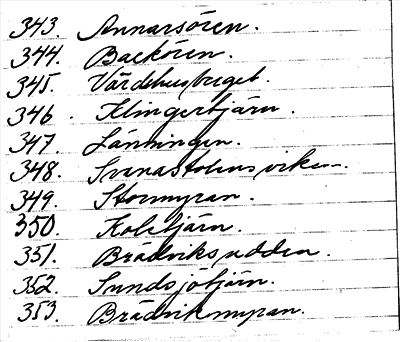 343. Annarsören.
344. Backören.
345. Vårdshusberget.
346. Klingertjärn.
347. Länningen.
348. Svenastolensviken.
349. Stormyran.
350. Koletjärn.
351. Brädviksudden.
352. Sundsjötjärn.
353. Brädvikmyran.